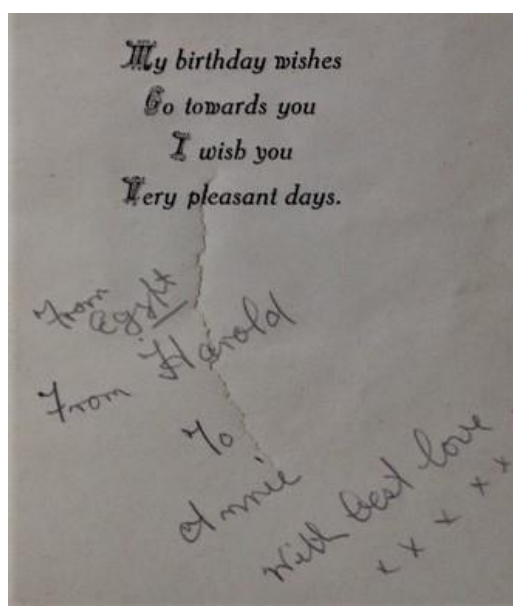 My birthday wishes
Go towards you
I wish you
Very pleasant days.
From
Egypt
From Harold
To
Annie
With best love
x x x x x